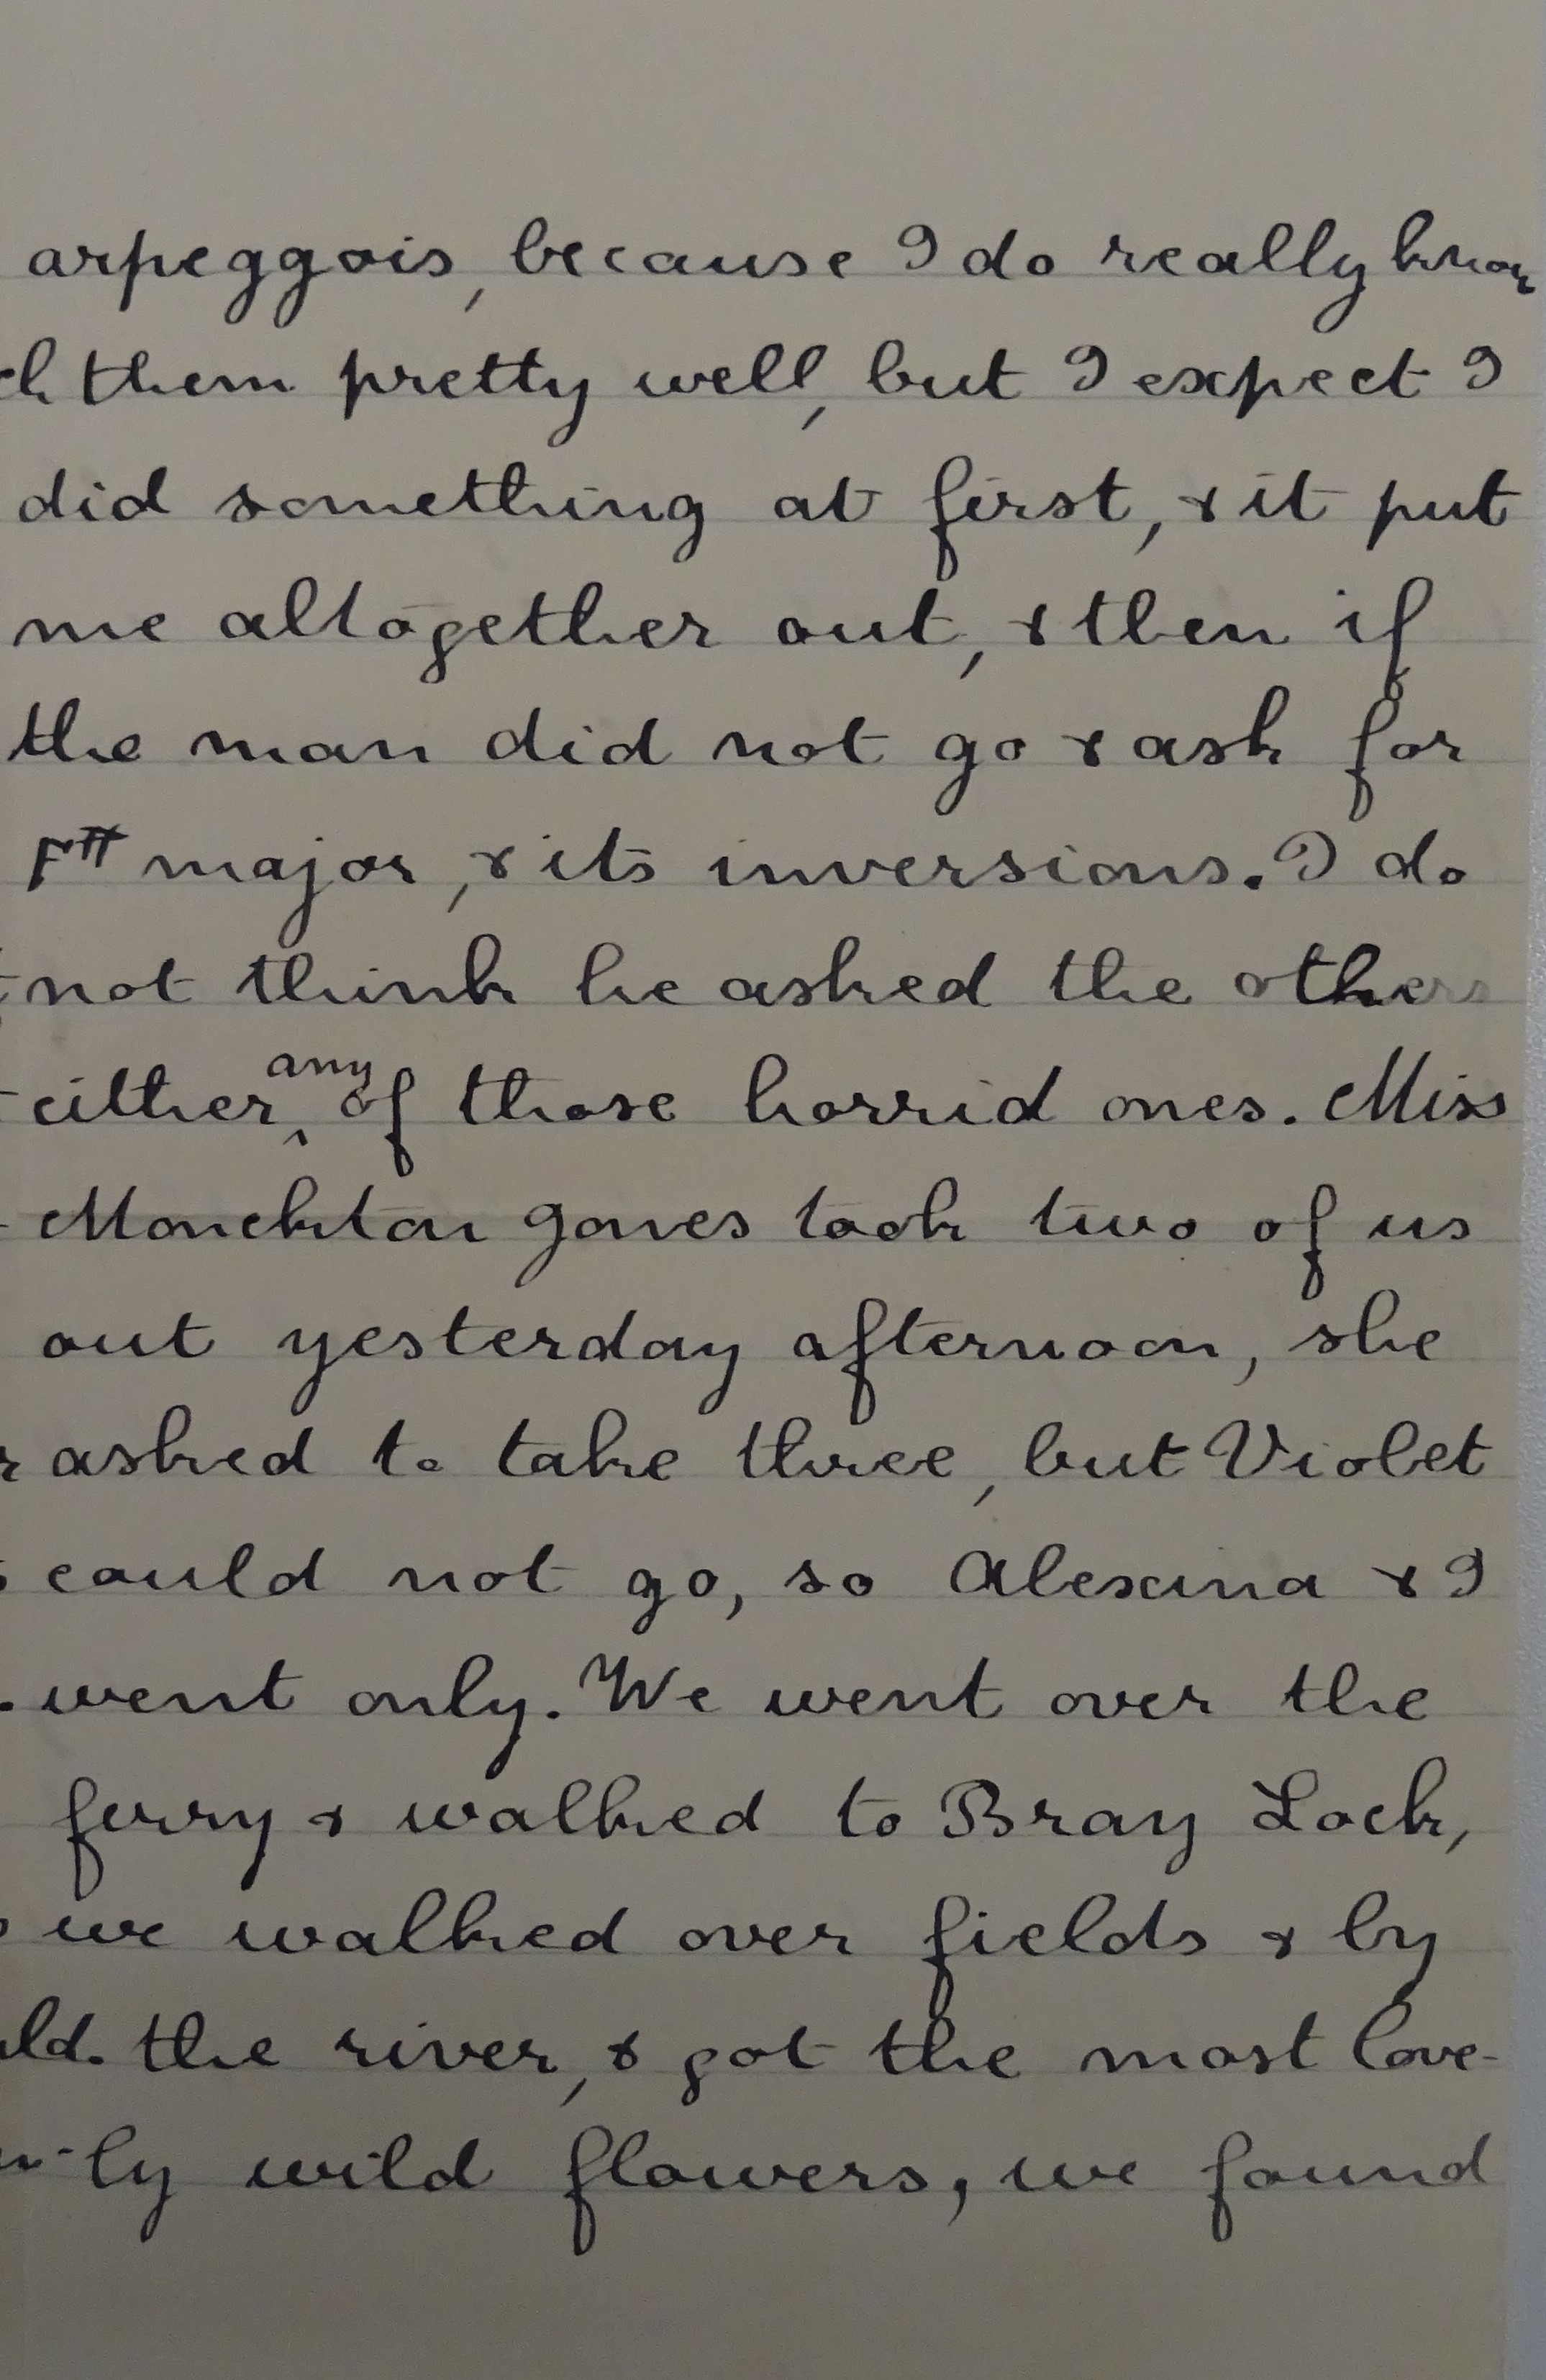 arpeggois, because I do really know
them pretty well, but I expect I
did something at first, & it put
me altogether out, & then if
the man did not go & ask for
F# major, & its inversions. I do
not think he asked the others
either any of those horrid ones. Miss
Monckton Jones took two of us
out yesterday afternoon, she
asked to take three, but Violet
could not go, so Alexina & I
went only. We went over the
ferry & walked to Bray Lock,
we walked over fields & by
the river, & got the most love-
-ly wild flowers, we found